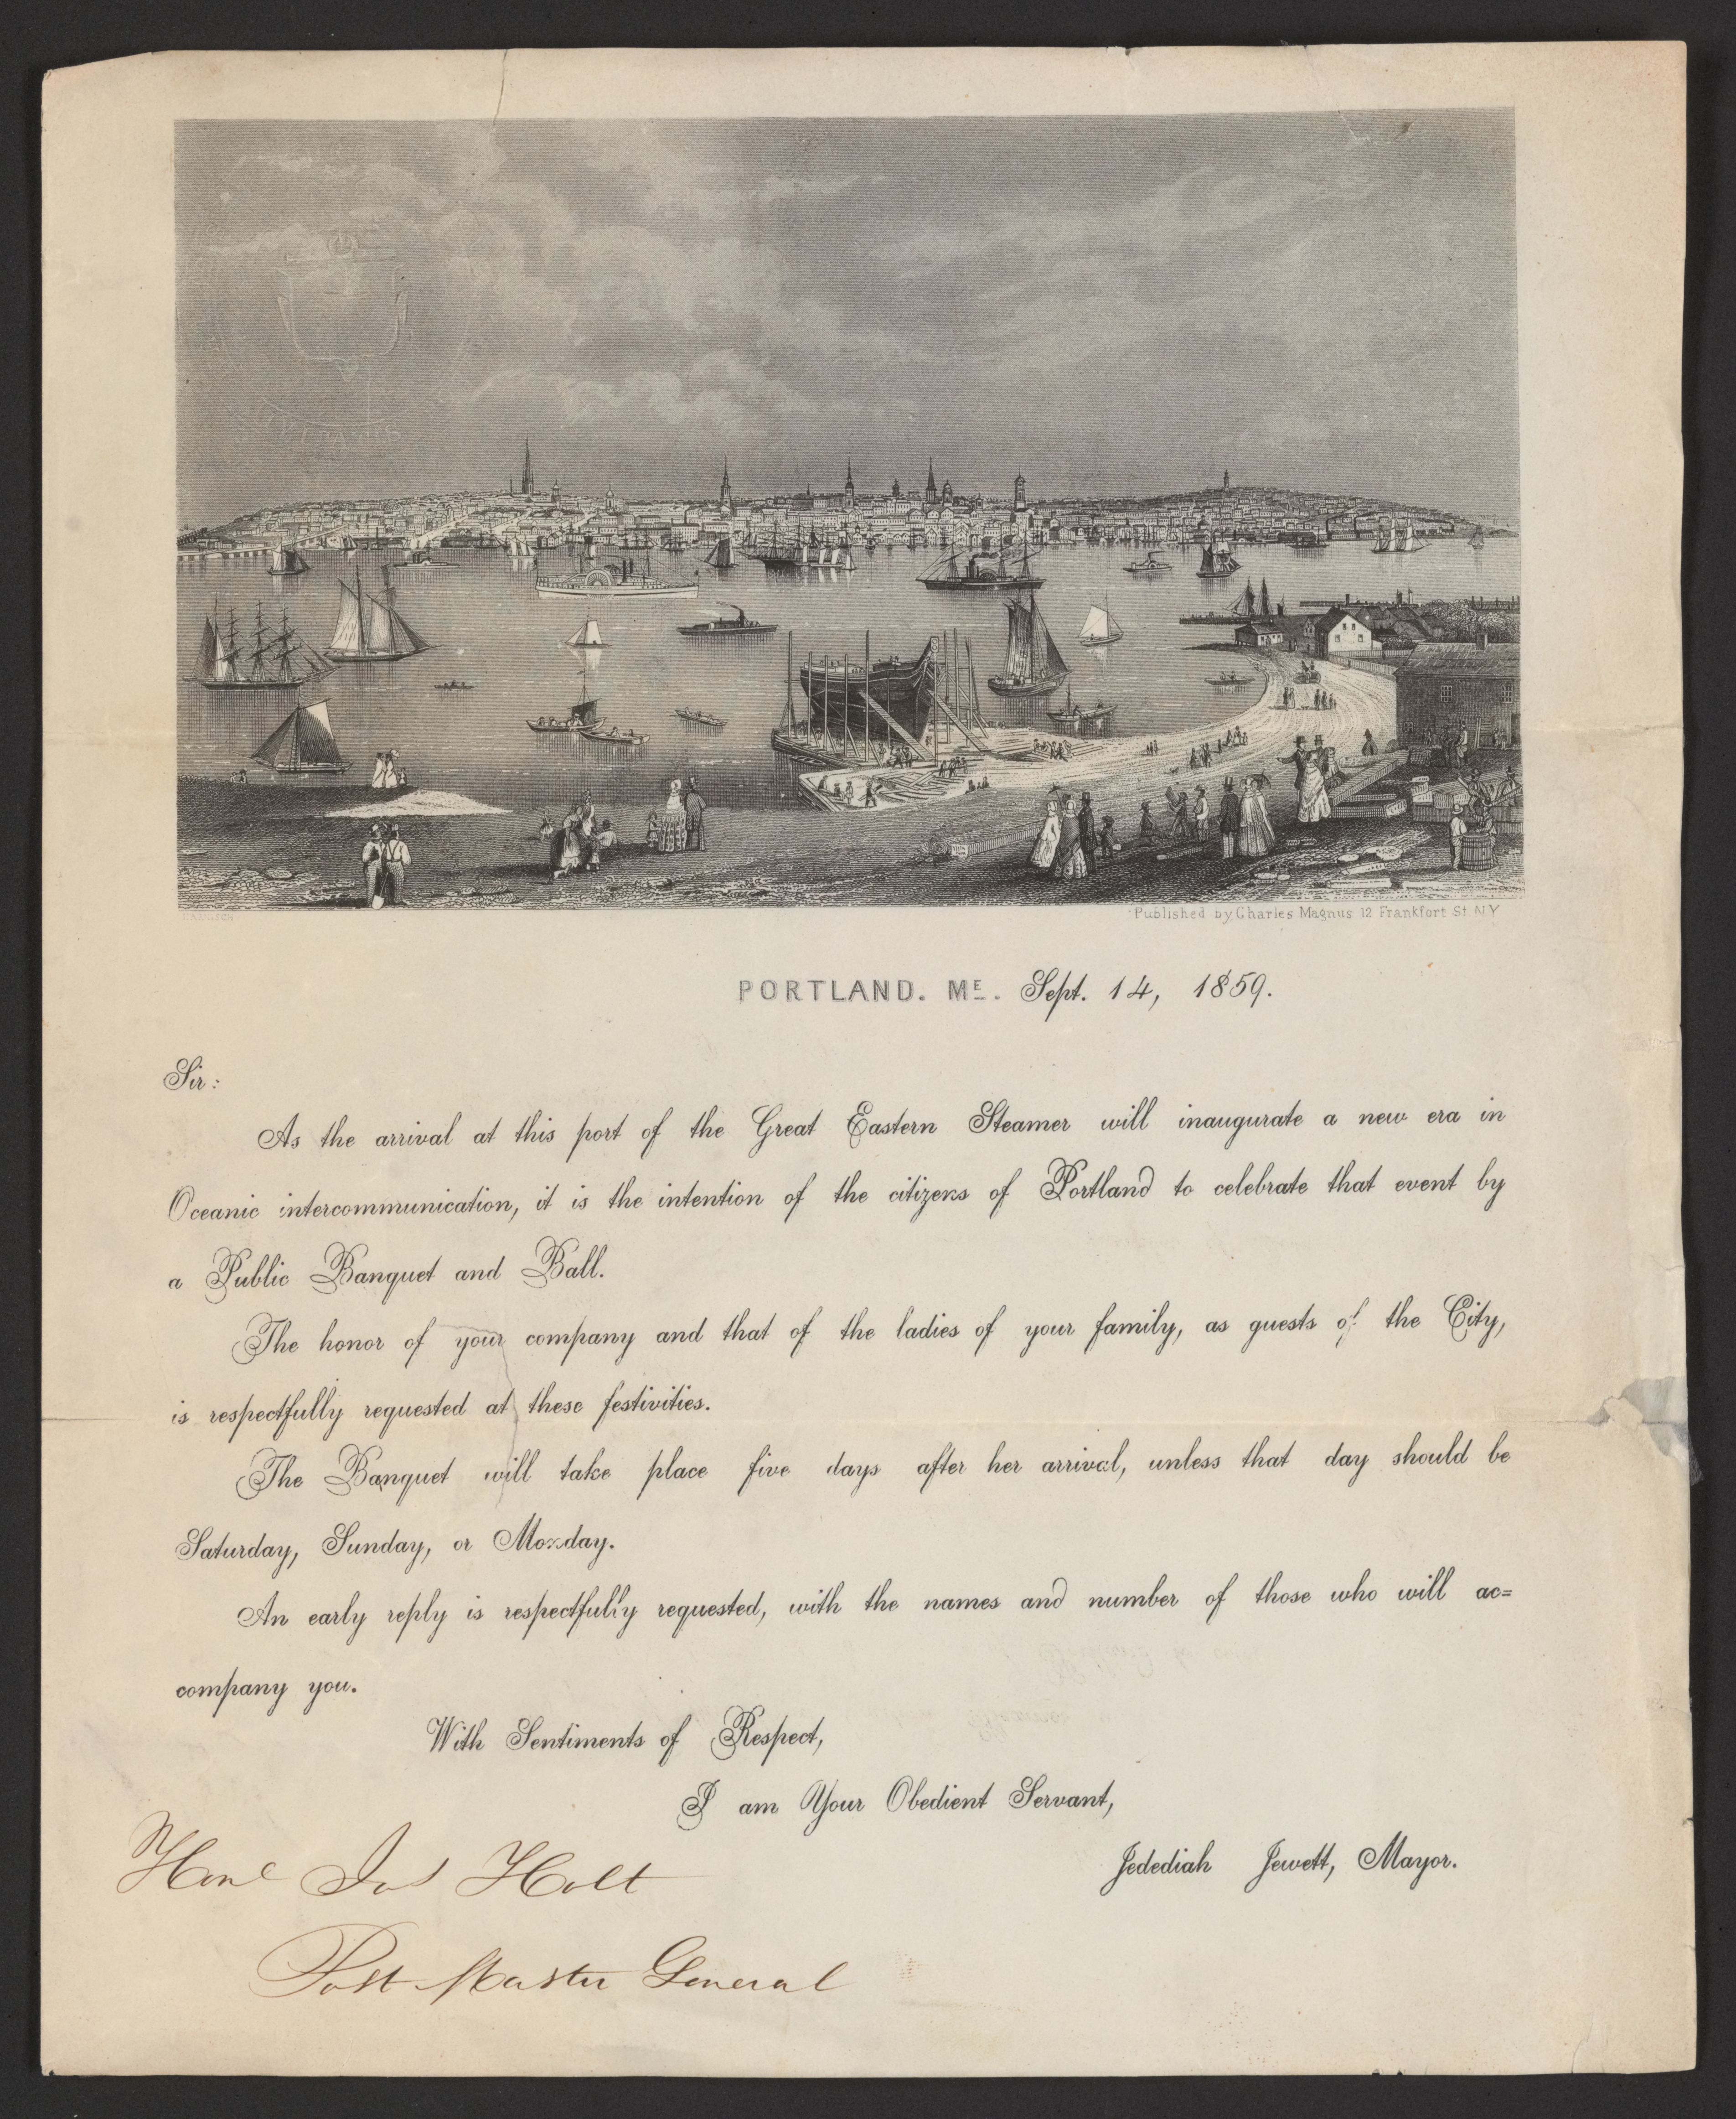 Published by Charles Magnus 12 Frankfort St. NY
PORTLAND. ME. Sept. 14, 1859.
Sir:
As the arrival at this port of the Great Eastern Steamer will inaugurate a new era in
Oceanic intercommunication, it is the intention of the citizens of Portland to celebrate that event by
a Public Banquet and Ball.
The honor of your company and that of the ladies of your family, as guests of the City,
is respectfully requested at these festivities.
The Banquet will take place five days after her arrival, unless that day should be
Saturday, Sunday, or Monday.
An early reply is respectfully requested, with the names and number of those who will ac=
company you.
With Sentiments of Respect,
I am Your Obedient Servant,
Jedediah Jewett, Mayor.
Honl Jos Holt
Post Master General